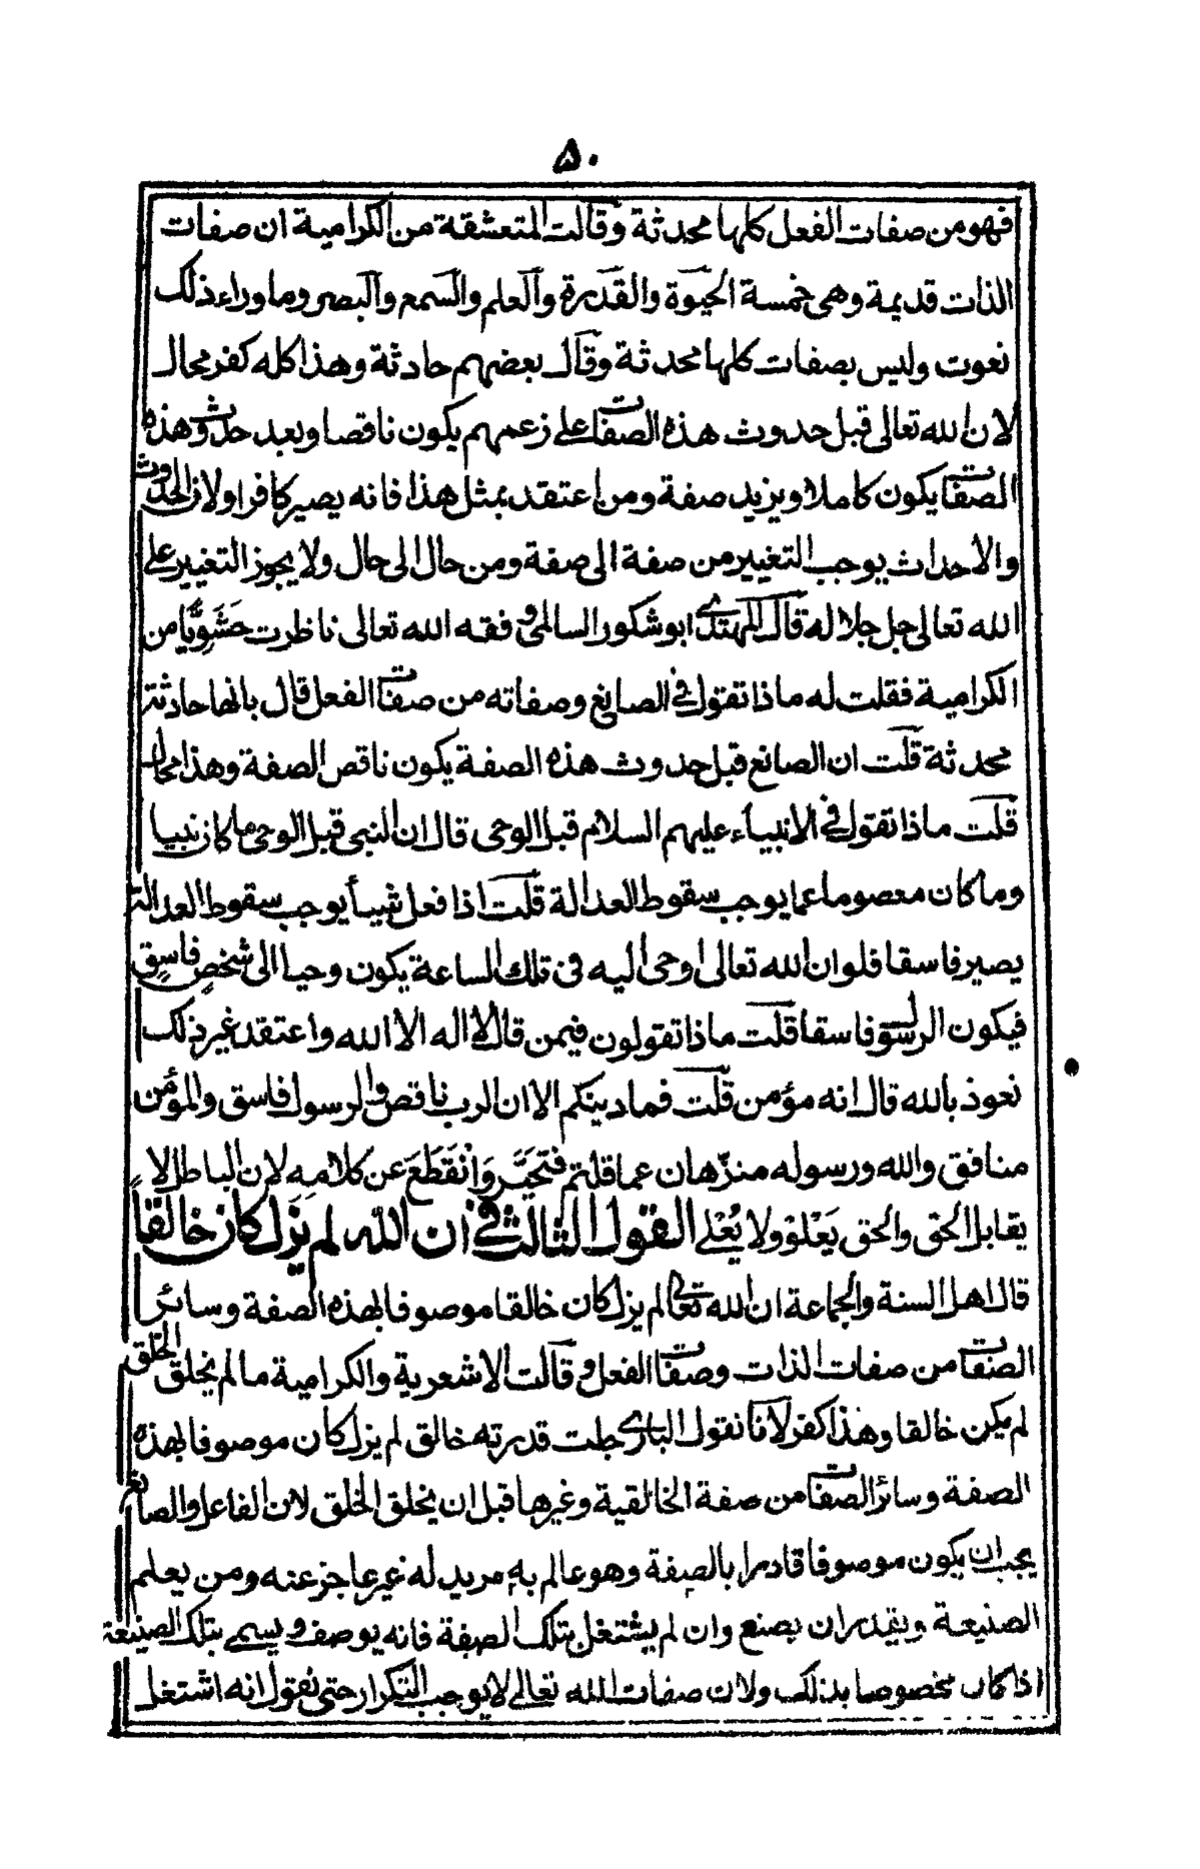 ۵۰
فهو من صفات الفعل كلها محدثة وقالت المتعشقة من الكرامية ان صفات
الذات قديمة وهى خمسة الحيوة والقدرة والعلم والسمع والبصر وما وراء ذلك
نعوت وليس بصفات كلها محدثة وقال بعضهم حادثة وهذا كله كفر محال
لان الله تعالى قبل حدوث هذه الصفات على زعمهم يكون ناقصا وبعد حدوث هذه
الصفات يكون كاملا ويزيد صفة ومن اعتقد بمثل هذا فانه يصير كافرا ولان الحدوث
والاحداث يوجب التغيير من صفة الى صفة ومن حال الى حال ولا يجوز التغيير على
الله تعالى جل جلاله قال المهتدى ابو شكور السالمى وفقه الله تعالى ناظرت حَشَوِيًّا من
الكرامية فقلت له ماذا تقول فى الصانع وصفاته من صفات الفعل قال بانها حادثة
محدثة قلت ان الصانع قبل حدوث هذه الصفة يكون ناقص الصفة وهذا محال
قلت ماذا تقول فى الانبياء عليهم السلام قبل الوحى قال ان النبى قبل الوحى ما كان نبيا
وما كان معصوما عما يوجب سقوط العدالة قلت اذا فعل شيأ يوجب سقوط العدالة
يصير فاسقا فلو ان الله تعالى اوحى اليه فى تلك الساعة يكون وحيا الى شخص فاسق
فيكون الرسول فاسقا قلت ماذا تقولون فيمن قال لا اله الا الله واعتقد غير ذلك
نعوذ بالله قال انه مؤمن قلت فما دينكم الا ان الرب ناقص والرسول فاسق والمؤمن
منافق والله ورسوله منزّهان عما قلتم فتحَيَّر وَانْقَطَعَ عن كلامه لان الباطل لا
يقابل الحق والحق يَعْلو ولا يُعْلى القول الثالث فى ان الله لم يزل كان خالقًا
قال اهل السنة والجماعة ان الله تعالى لم يزل كان خالقا موصوفا بهذه الصفة وسائر
الصفات من صفات الذات وصفات الفعل وقالت الاشعرية والكرامية ما لم يخلق الخلق
لم يكن خالقا وهذا كفر لانا نقول البارى جلت قدرته خالق لم يزل كان موصوفا بهذه
الصفة وسائر الصفات من صفة الخالقية وغيرها قبل ان يخلق الخلق لان الفاعل والصانع
يجب ان يكون موصوفا قادرا بالصفة وهو عالم به مريد له غير عاجز عنه ومن يعلم
الصنيعة ويقدر ان يصنع وان لم يشتغل بتلك الصفة فانه يوصف ويسمى بتلك الصنيعة
اذا كان مخصوصا بذلك ولان صفات الله تعالى لا يوجب التكرار حتى نقول انه اشتغل